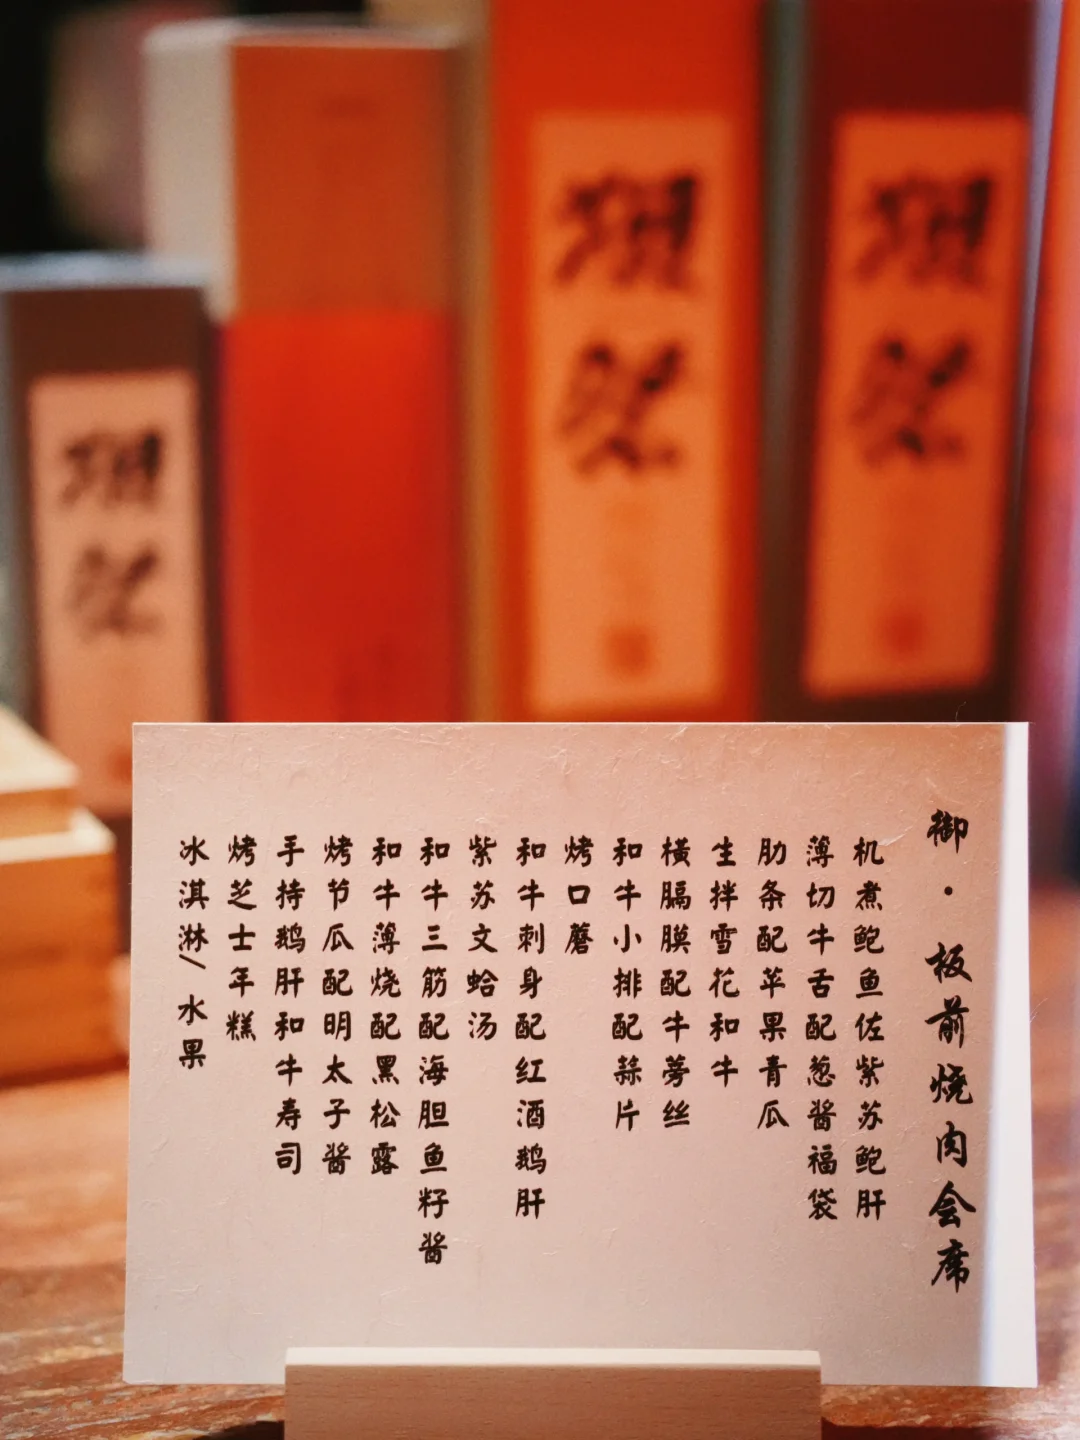 御·板前烧肉会席
机煮鲍鱼佐紫苏鲍肝
薄切牛舌配葱酱福袋
肋条配苹果青瓜
生拌雪花和牛
横膈膜配牛蒡丝
和牛小排配蒜片
烤口蘑
和牛刺身配红酒鹅肝
紫苏文蛤汤
和牛三筋配海胆鱼籽酱
和牛薄烧配黑松露
烤节瓜配明太子酱
手持鹅肝和牛寿司
烤芝士年糕
冰淇淋/水果